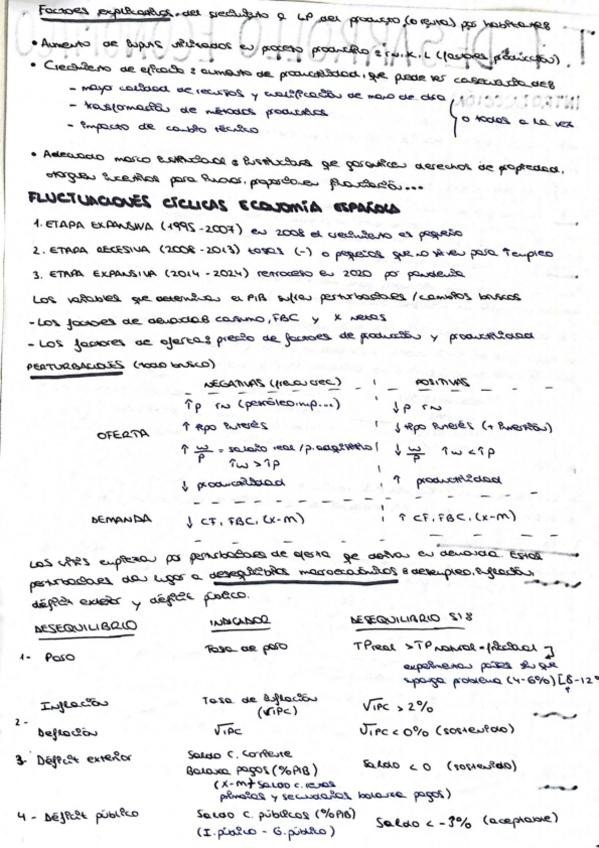 Factores explicativos del crecimiento a LP del producto (o renta) por habitante
• Aumento de inputs utilizados en proceso productivo : rn, K, L (factores producción)
• Crecimiento de eficacia : aumento de productividad, que puede ser consecuencia de:
- mayor calidad de recursos y cualificación de mano de obra
- trasformación de métodos productivos
- impacto de cambio técnico
o todos a la vez
• Adecuado marco institucional : instituciones que garanticen derechos de propiedad,
otorguen incentivos para innovar, proporcionen financiación...
FLUCTUACIONES CÍCLICAS ECONOMÍA ESPAÑOLA
1. ETAPA EXPANSIVA (1995-2007) en 2008 el crecimiento es pequeño
2. ETAPA RECESIVA (2008-2013) tasas (-) o pequeñas que no sirven para ↑empleo
3. ETAPA EXPANSIVA (2014-2024) retroceso en 2020 por pandemia
Las variables que determinan el PIB sufren perturbaciones / cambios bruscos
- Los factores de demanda: consumo, FBC y X netas
- Los factores de oferta: precio de factores de producción y productividad
PERTURBACIONES (todo brusco)
NEGATIVAS (frena crec.) POSITIVAS
↑p rn (petróleo, mp...) ↓p rn
OFERTA ↑ tipo interés ↓ tipo interés (+ inversión)
↑ w/p = salario real / p. adquisitivo ↓ w/p ↑w < ↑p
↑w > ↑p
↓ productividad ↑ productividad
DEMANDA ↓ CF, FBC, (X-M) ↑ CF, FBC, (X-M)
Las crisis empiezan por perturbaciones de oferta que derivan en demanda. Estas
perturbaciones dan lugar a desequilibrios macroeconómicos : desempleo, inflación,
déficit exterior y déficit público.
DESEQUILIBRIO INDICADOR DESEQUILIBRIO SI:
1- Paro Tasa de paro TP real > TP natural = friccional
experimentan países sin que
suponga problema (4-6%) [8-12%
Inflación Tasa de inflación (VIPC) VIPC > 2%
2 -
Deflación VIPC VIPC < 0% (sostenido)
3- Déficit exterior Saldo C. Corriente
Balanza pagos (%PIB) Saldo < 0 (sostenido)
(X-M + Saldo c. rentas
primarias y secundarias balanza pagos)
4 - Déficit público Saldo C. públicas (%PIB) Saldo < -3% (aceptable)
(I. público - G. público)